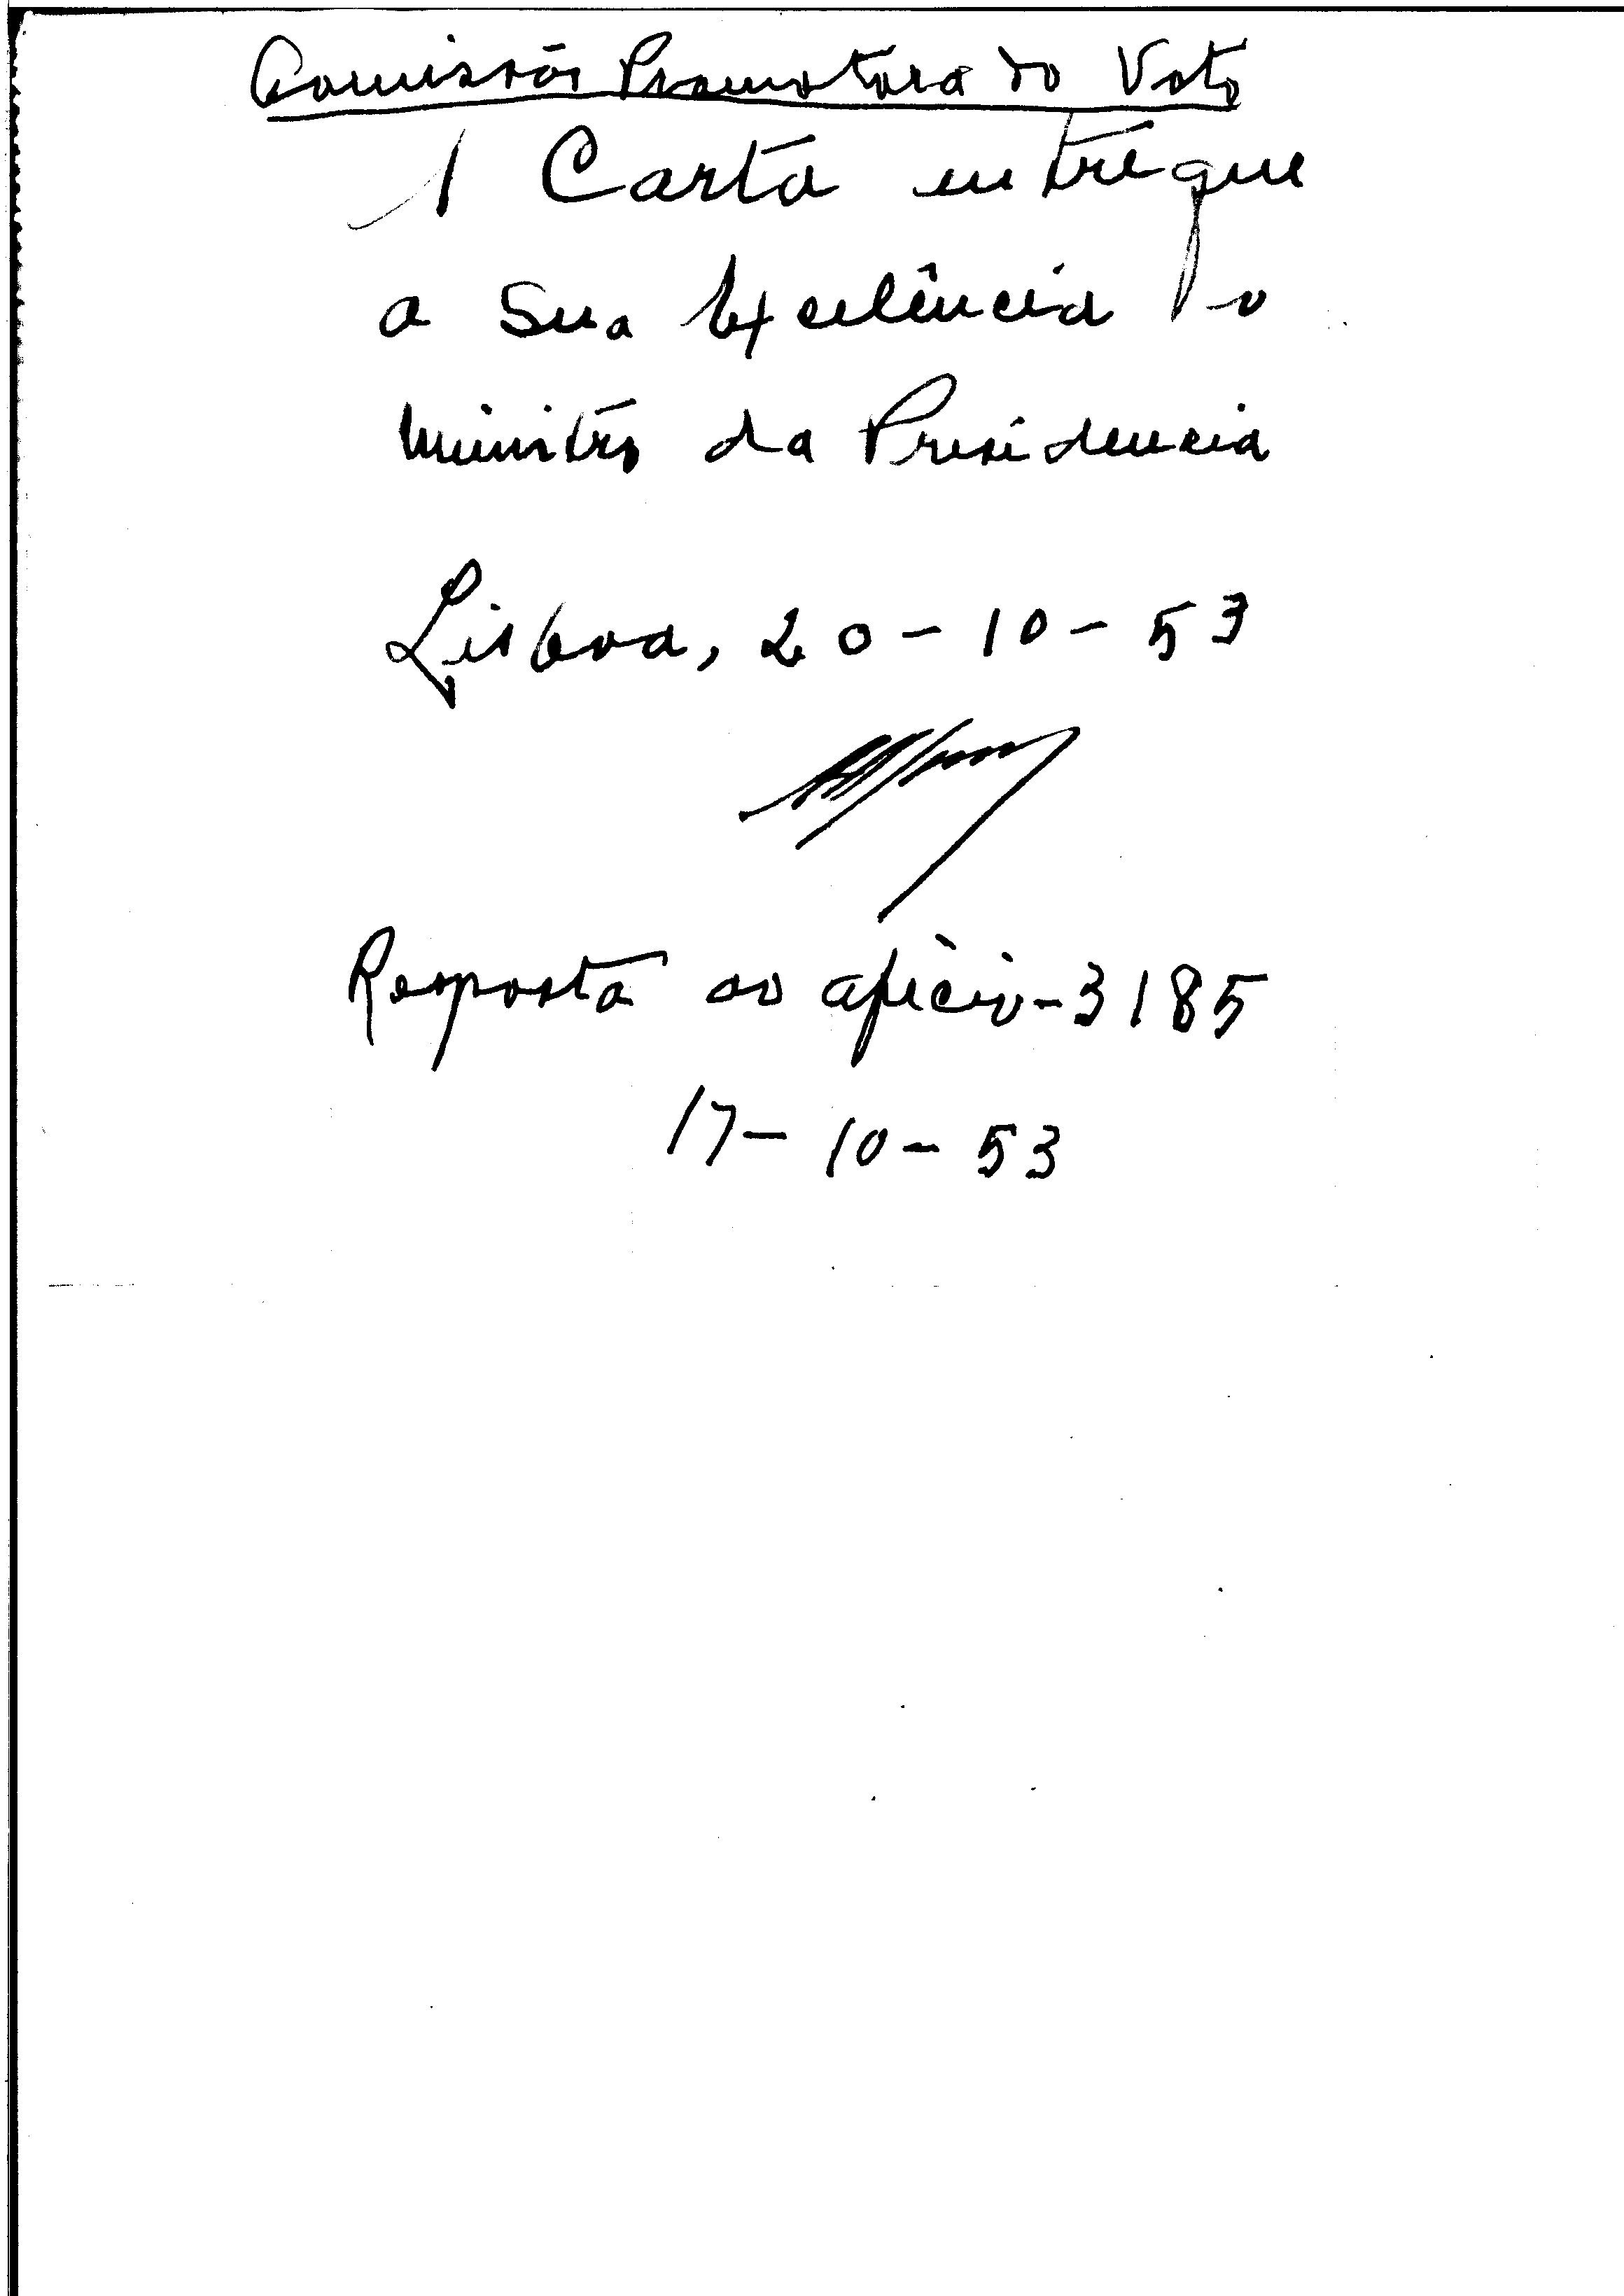 Comissão Promotora do Voto
1 Carta entregue
a Sua Excelência o
Ministro da Presidencia
Lisboa, 20-10-53
Resposta ao ofício-3185
17-10-53